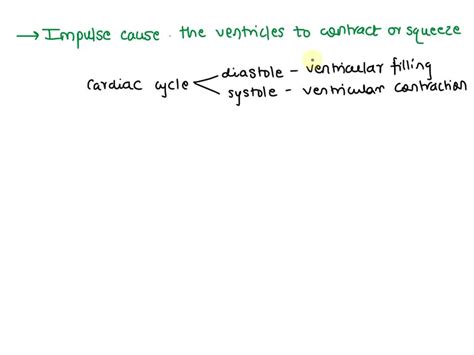 → Impulse cause. the ventricles to contract or squeeze
cardiac cycle
diastole - ventricular filling
systole - ventricular contraction